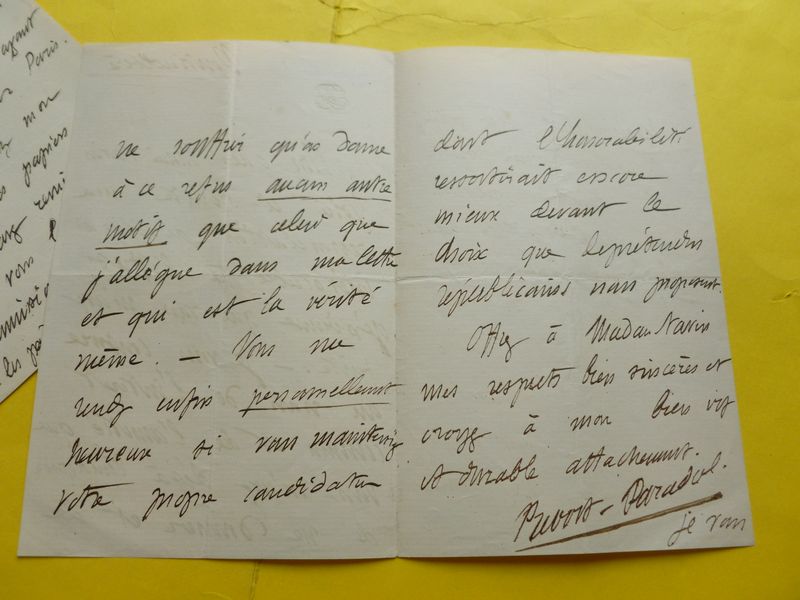 ayant
Paris.
mon
papiers
vous
les
ne souffrir qu'on donne
à ce refus aucun autre
motif que celui que
j'allègue dans ma lettre
et qui est la vérité
même. — Vous me
rendez enfin personnellement
heureux si vous mainteniez
votre propre candidature
dont l'honorabilité
ressortirait encore
mieux devant le
choix que les prétendus
républicains nous proposent.
Offrez à Madame Navin
mes respects bien sincères et
croyez à mon bien vif
et durable attachement.
Prevost-Paradol.
je vous